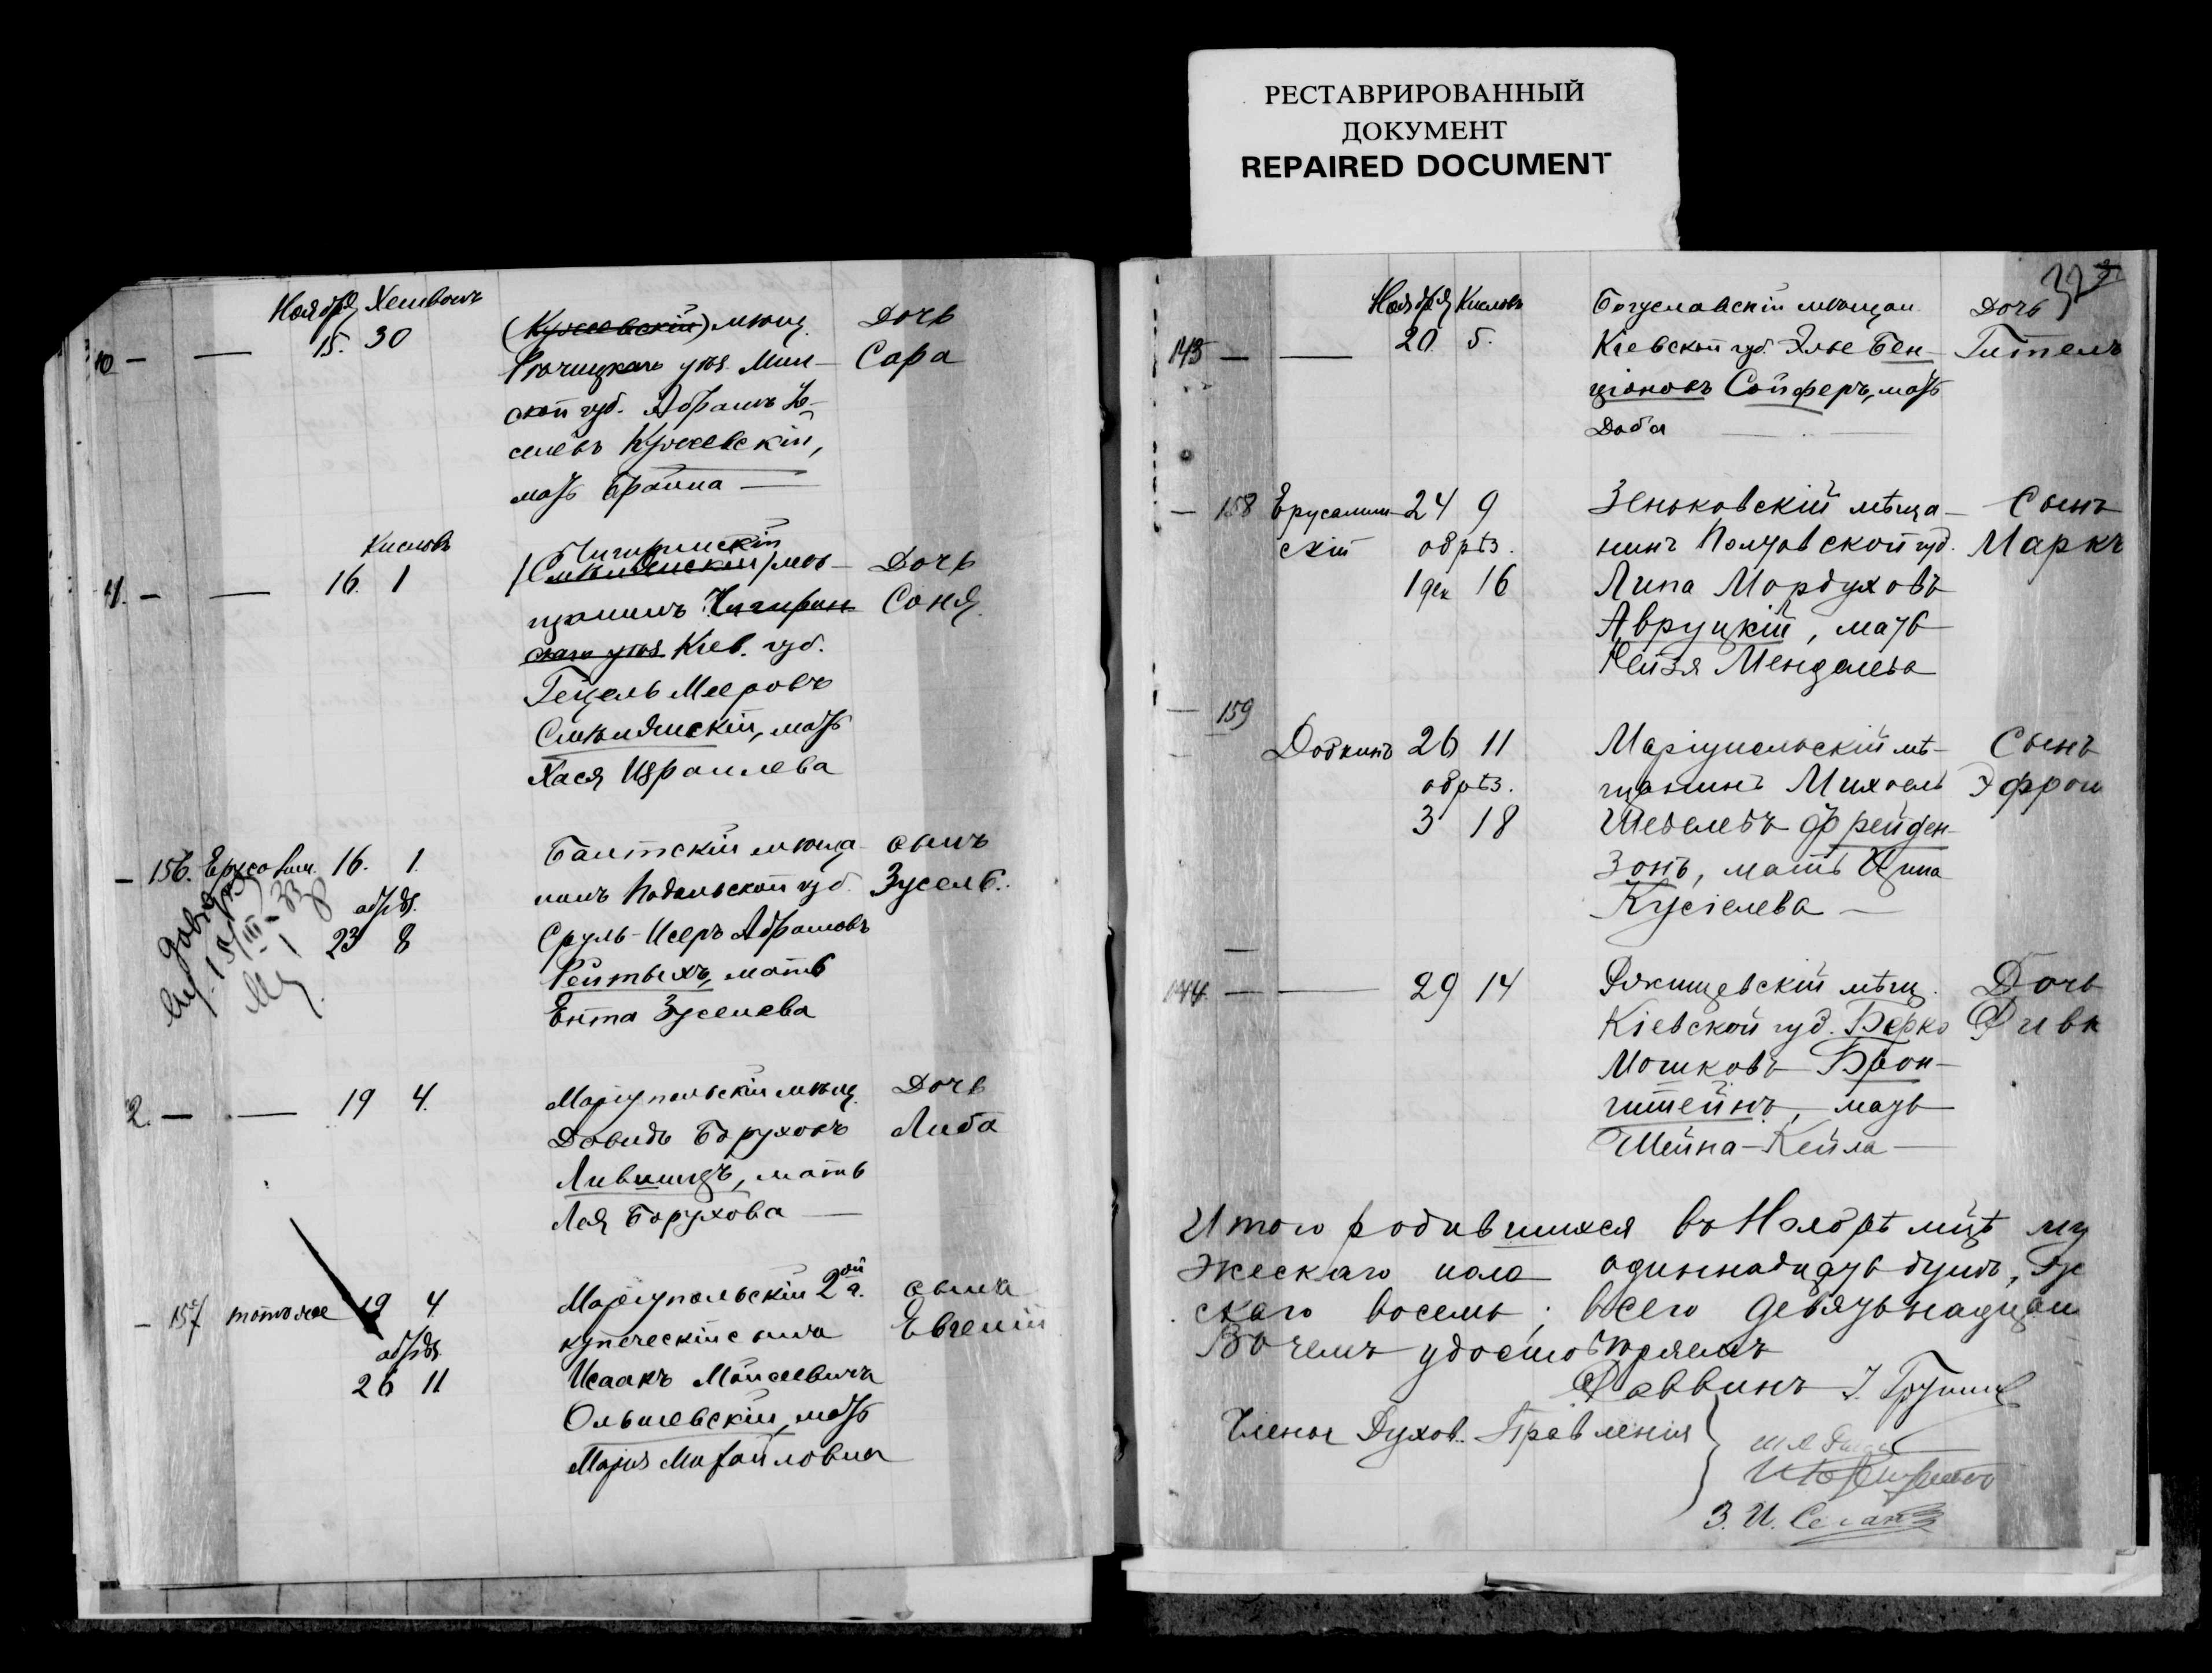 РЕСТАВРИРОВАННЫЙ
ДОКУМЕНТ
REPAIRED DOCUMENT
Ноября Хешвонъ
15. 30
(Кужевскій) мѣщ.
Рѣчицкаго уѣз. Мин-
ской губ. Абрамъ
Кужевскій,
мать Брайна —
Дочь
Сара
Кислевъ
16. 1
Чигиринскій
(Смѣлянскій) мѣ-
щанинъ Чигирин
скаго уѣз. Кіев. губ.
Гецель Мееровъ
Смѣлянскій, мать
Хася Израилева
Дочь
Соня.
— 156. 16. 1.
обрѣз.
23 8
Балтскій мѣща-
нинъ Подольской губ.
Сруль-Исеръ Абрамовъ
Рейтыхъ, мать
Ента Зуселева
сынъ
Зусель.
2. — — 19 4.
Маріупольскій мѣщ.
Довидъ Боруховъ
Лившицъ, мать
Лея Борухова —
Дочь
Либа
— 157 тотъ же 19 4
обрѣз.
26 11
Маріупольскій 2ой г.
купеческій сынъ
Исаакъ Мойсеевичъ
Ольшевскій, мать
Марія Михайловна
сынъ
Евгеній
32
Ноября Кислевъ
143 — — 20 5.
Богуславскій мѣщан.
Кіевской губ. Элье Бен-
ціоновъ Сойферъ, мать
Доба —
Дочь
Гитель
— 158 Ерусалим- 24 9
скій обрѣз.
1 дек 16
Зеньковскій мѣща-
нинъ Полтавской губ.
Липа Мордуховъ
Авруцкій, мать
Рейзя Менделева
Сынъ
Маркъ
— 159
Добкинъ 26 11
обрѣз.
3 18
Маріупольскій мѣ-
щанинъ Михоель
Шевелевъ Фрейден-
зонъ, мать Ципа
Кусіелева —
Сынъ
Эфроим
144. — — 29 14
Ржищевскій мѣщ.
Кіевской губ. Берко
Мошковъ Брон-
штейнъ, мать
Шейна-Кейла —
Дочь
Ривк
Итого родившихся въ Ноябрѣ мцѣ му
жескаго пола одиннадцать душъ, Же
скаго восемь; всего девятьнадцать
Въ чемъ удостовѣряемъ
Раввинъ
Члены Духов. Правленія
З. И.